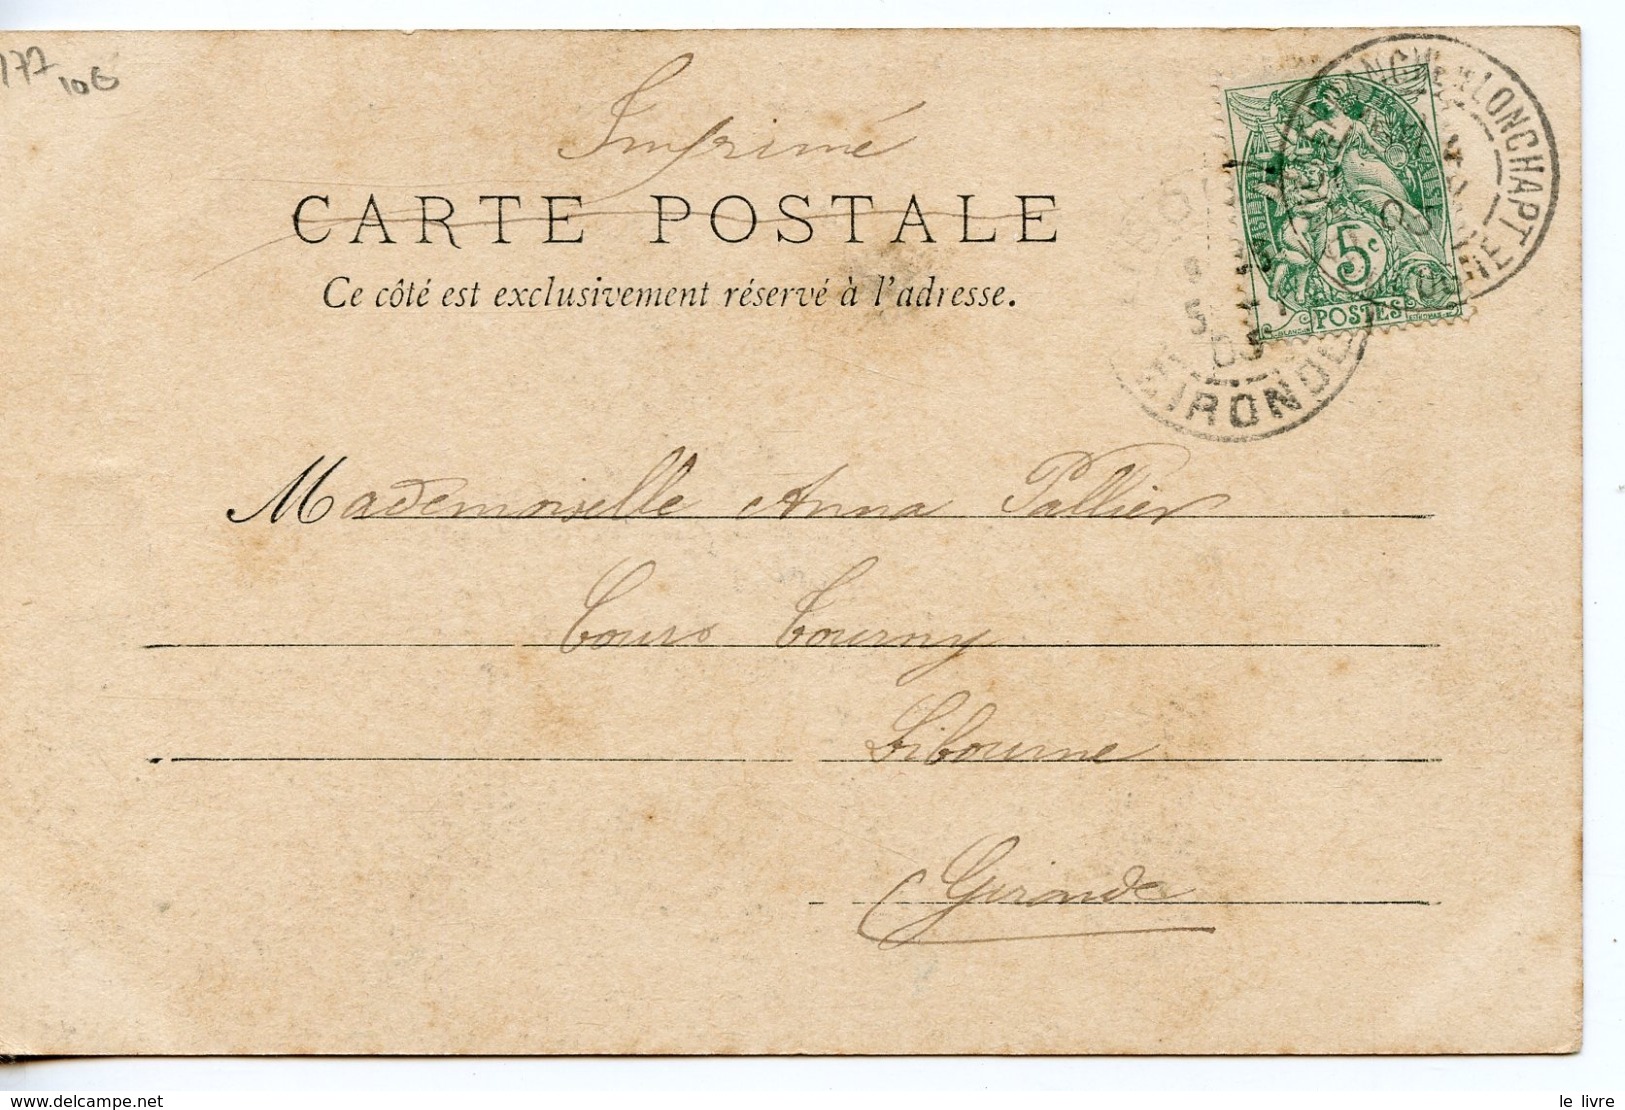 177
10€
Imprimé
CARTE POSTALE
Ce côté est exclusivement réservé à l'adresse.
5c
POSTES
LONCHAPT
03
5
03
GIRONDE
Mademoiselle Anna Pallier
Cours Tourny
Libourne
Gironde
www.delcampe.net
le livre